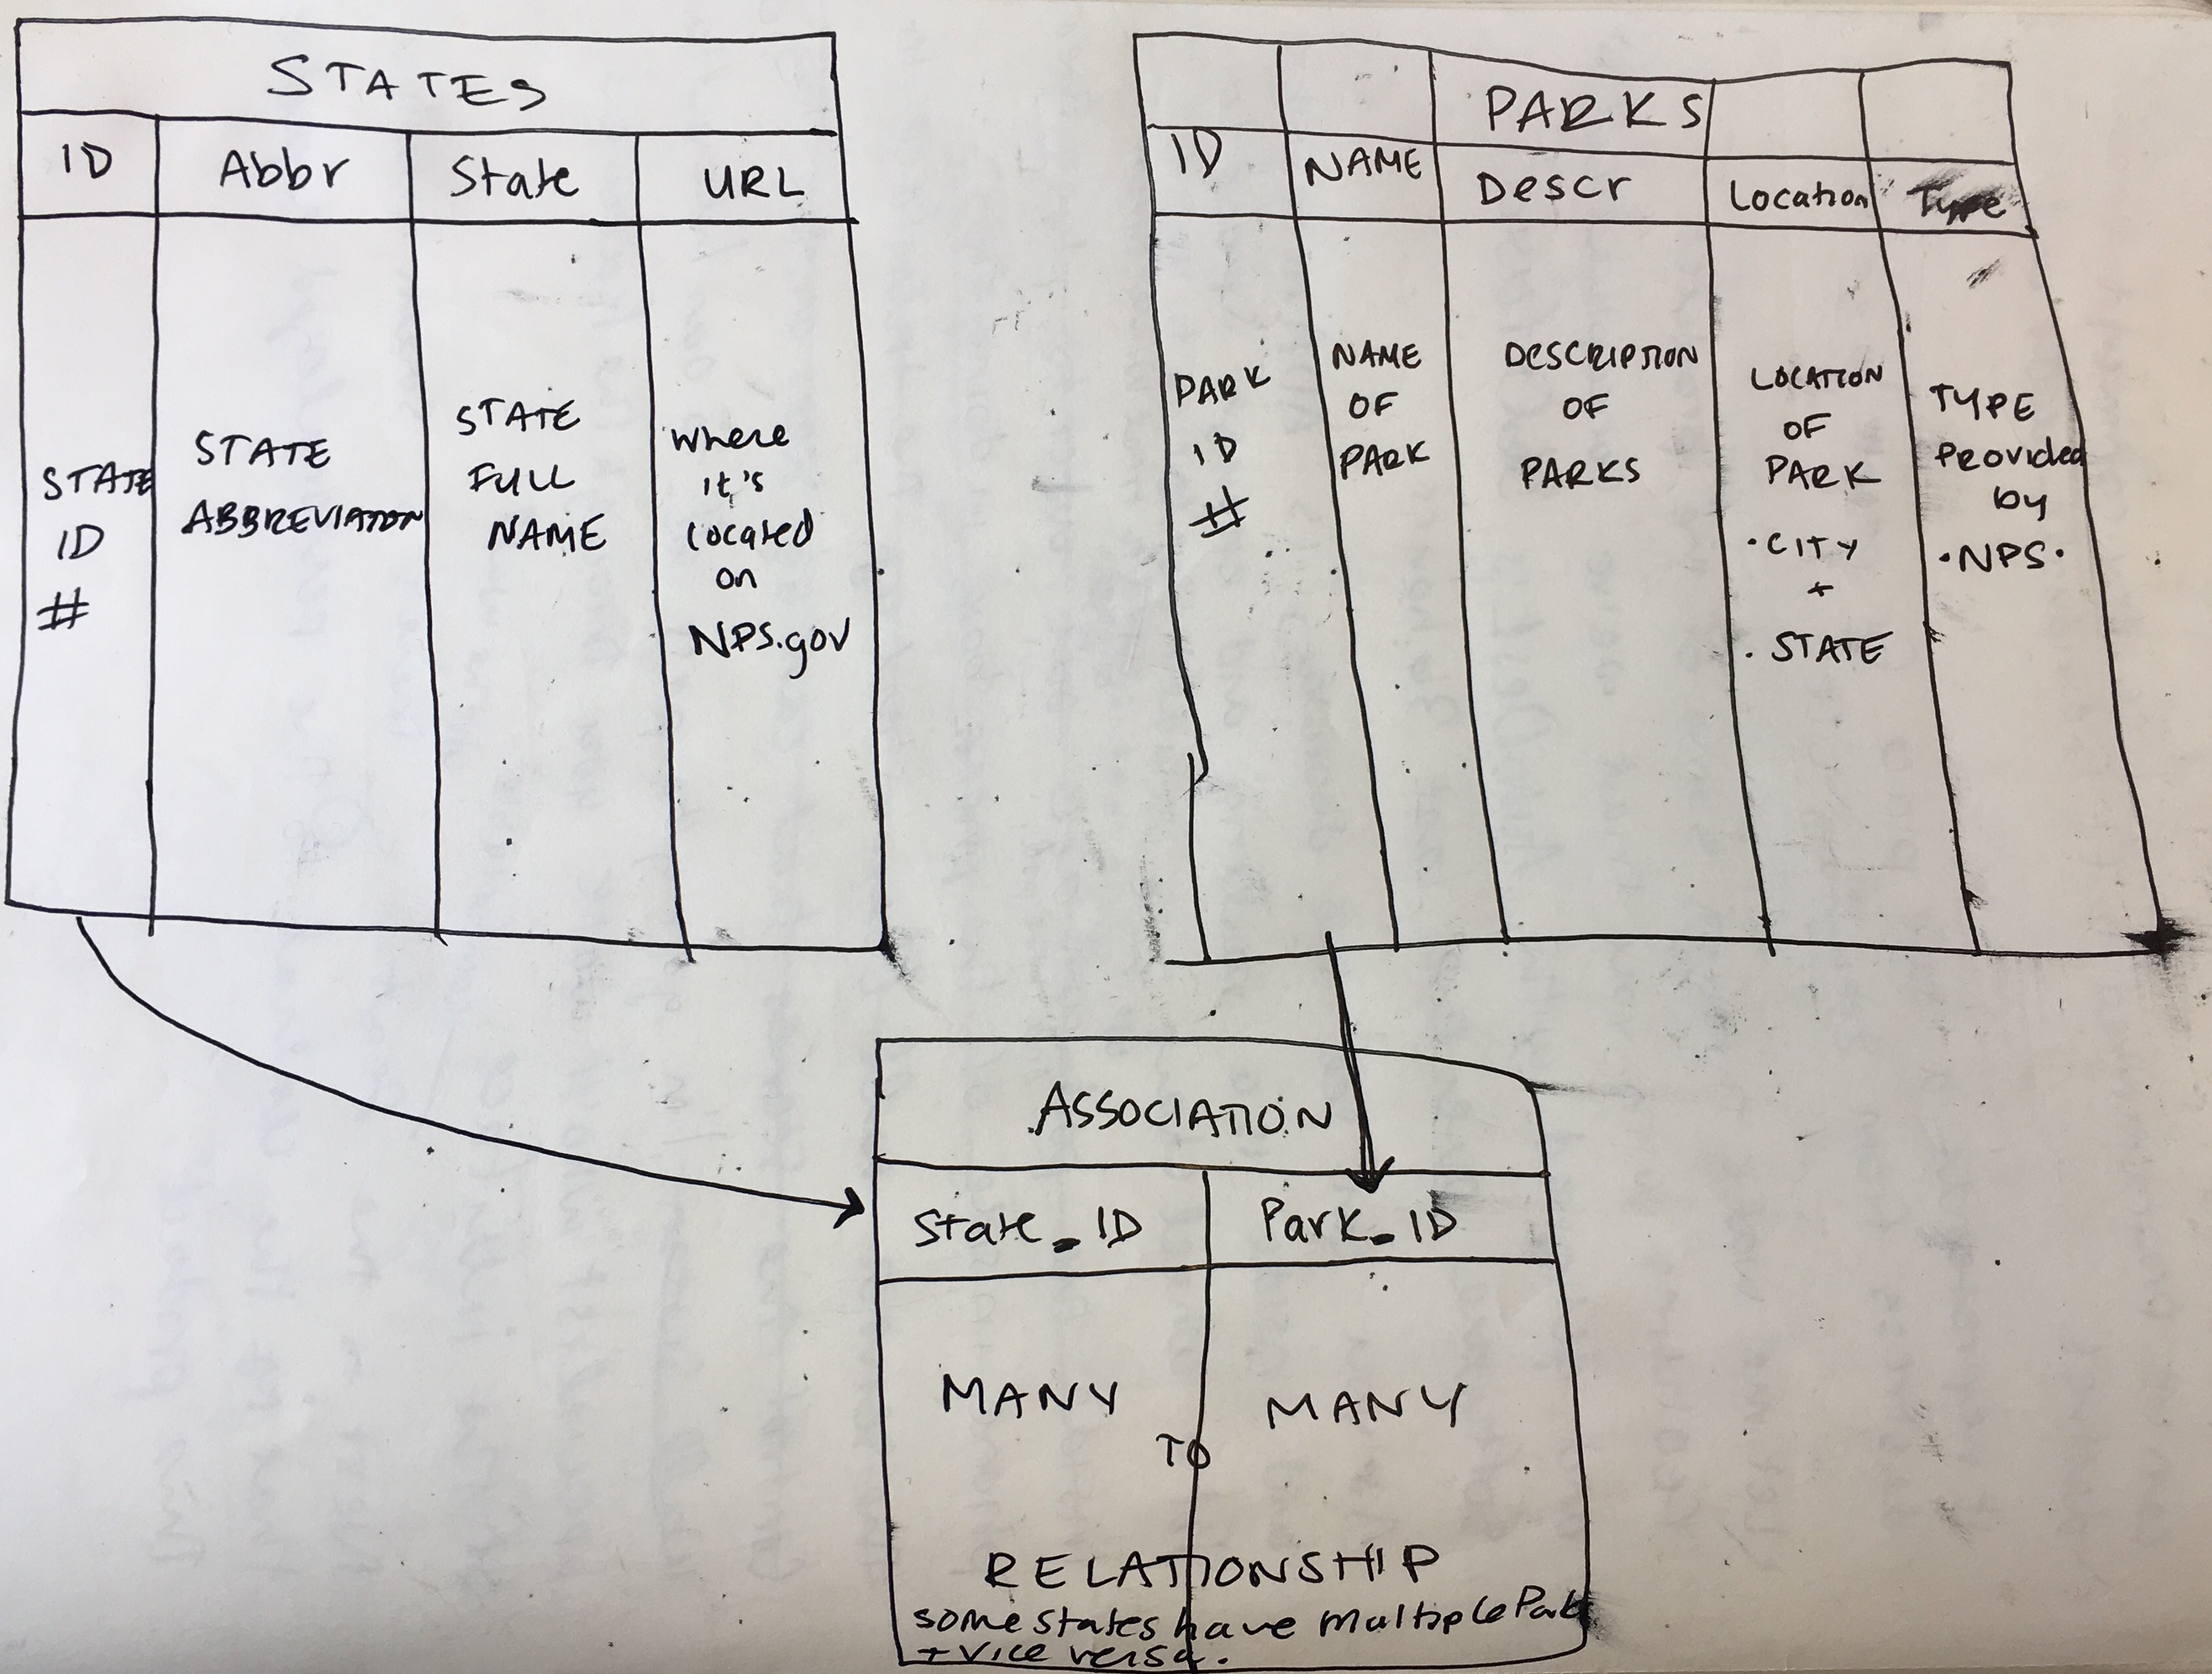 STATES
ID Abbr State URL
STATE
ID
#
STATE
ABBREVIATION
STATE
FULL
NAME
where
it's
located
on
NPS.gov
PARKS
ID NAME Descr Location Type
PARK
ID
#
NAME
OF
PARK
DESCRIPTION
OF
PARKS
LOCATION
OF
PARK
• CITY
+
• STATE
TYPE
Provided
by
• NPS •
ASSOCIATION
State_ID Park_ID
MANY MANY
TO
RELATIONSHIP
some states have multiple Park
+ vice versa.